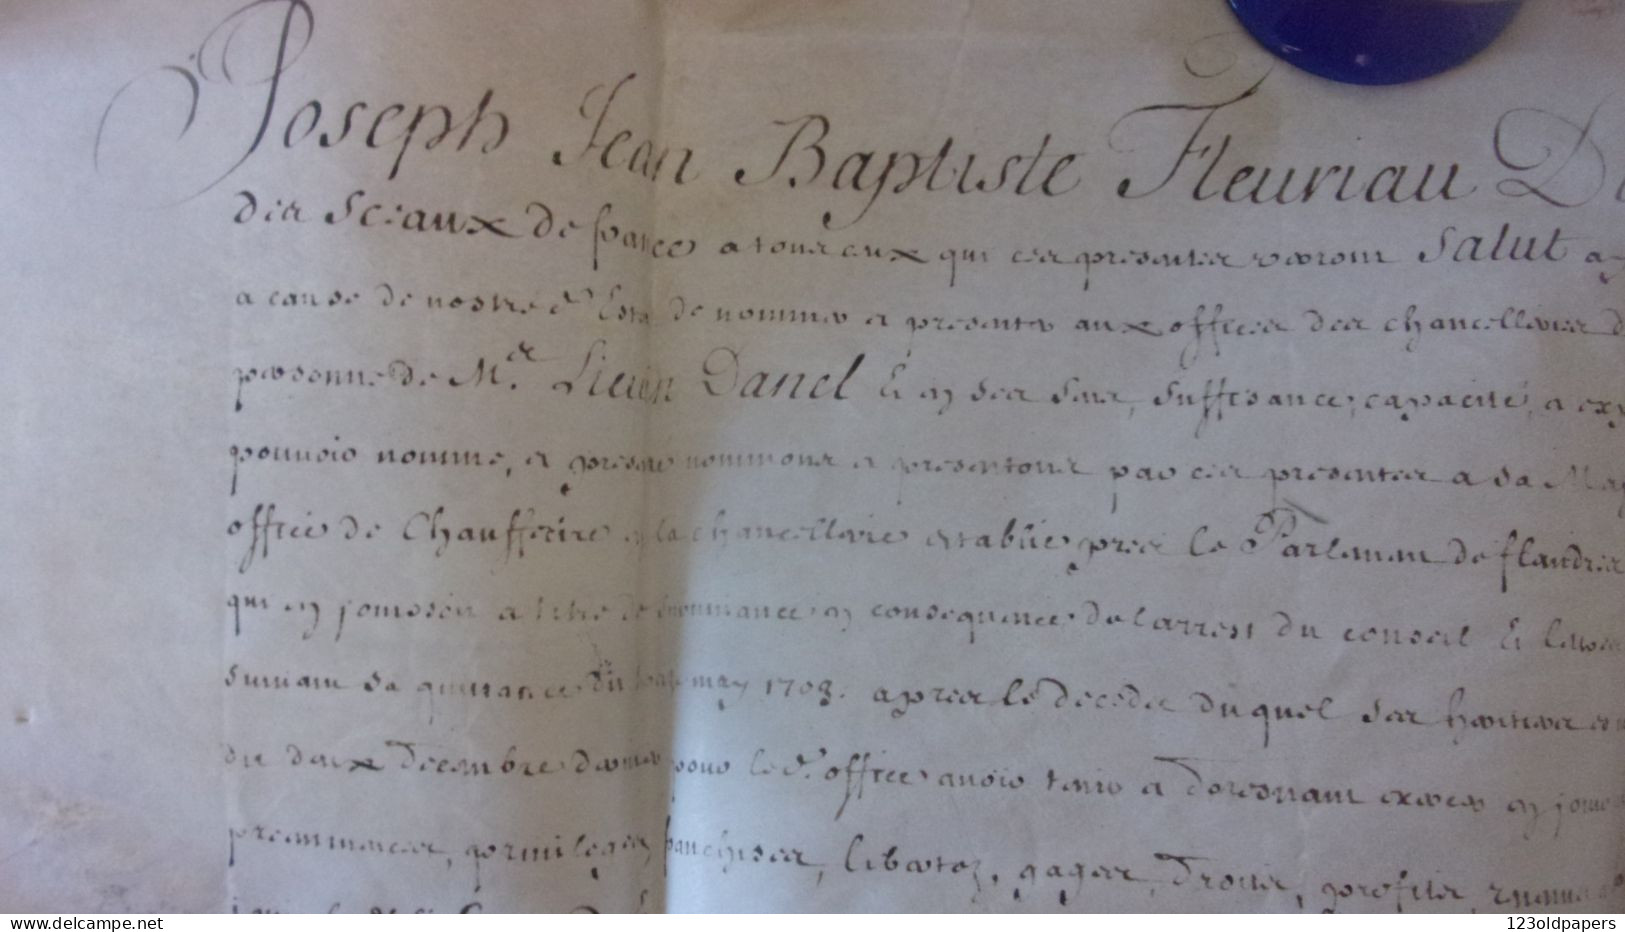 Joseph Jean Baptiste Fleuriau D
des Sceaux de france a tous ceux qui ces presentes verront Salut a
a cause de nostre d. Estat de nommer et presenter aux offices des chancelleries d
personne de Me. Lieuin Danel Et en ses sens, suffisance, capacité, a ex
pouuoir nommé, et presenté nommons et presentons par ces presentes a Sa Ma
office de Chauffecire en la chancellerie establie pres le Parlement de flandres
qui en jouissoit a titre de suruiuance en consequence de larrest du conseil Et
suiuant sa quittance du may 1708. apres le decedes duquel ses heritiers
du deux Decembre dernier pour led. office auoir tenir et doresnauant exercer en joui
preeminences, priuileges franchises, libertez, gages, Droits, profits, reuenus
123oldpapers